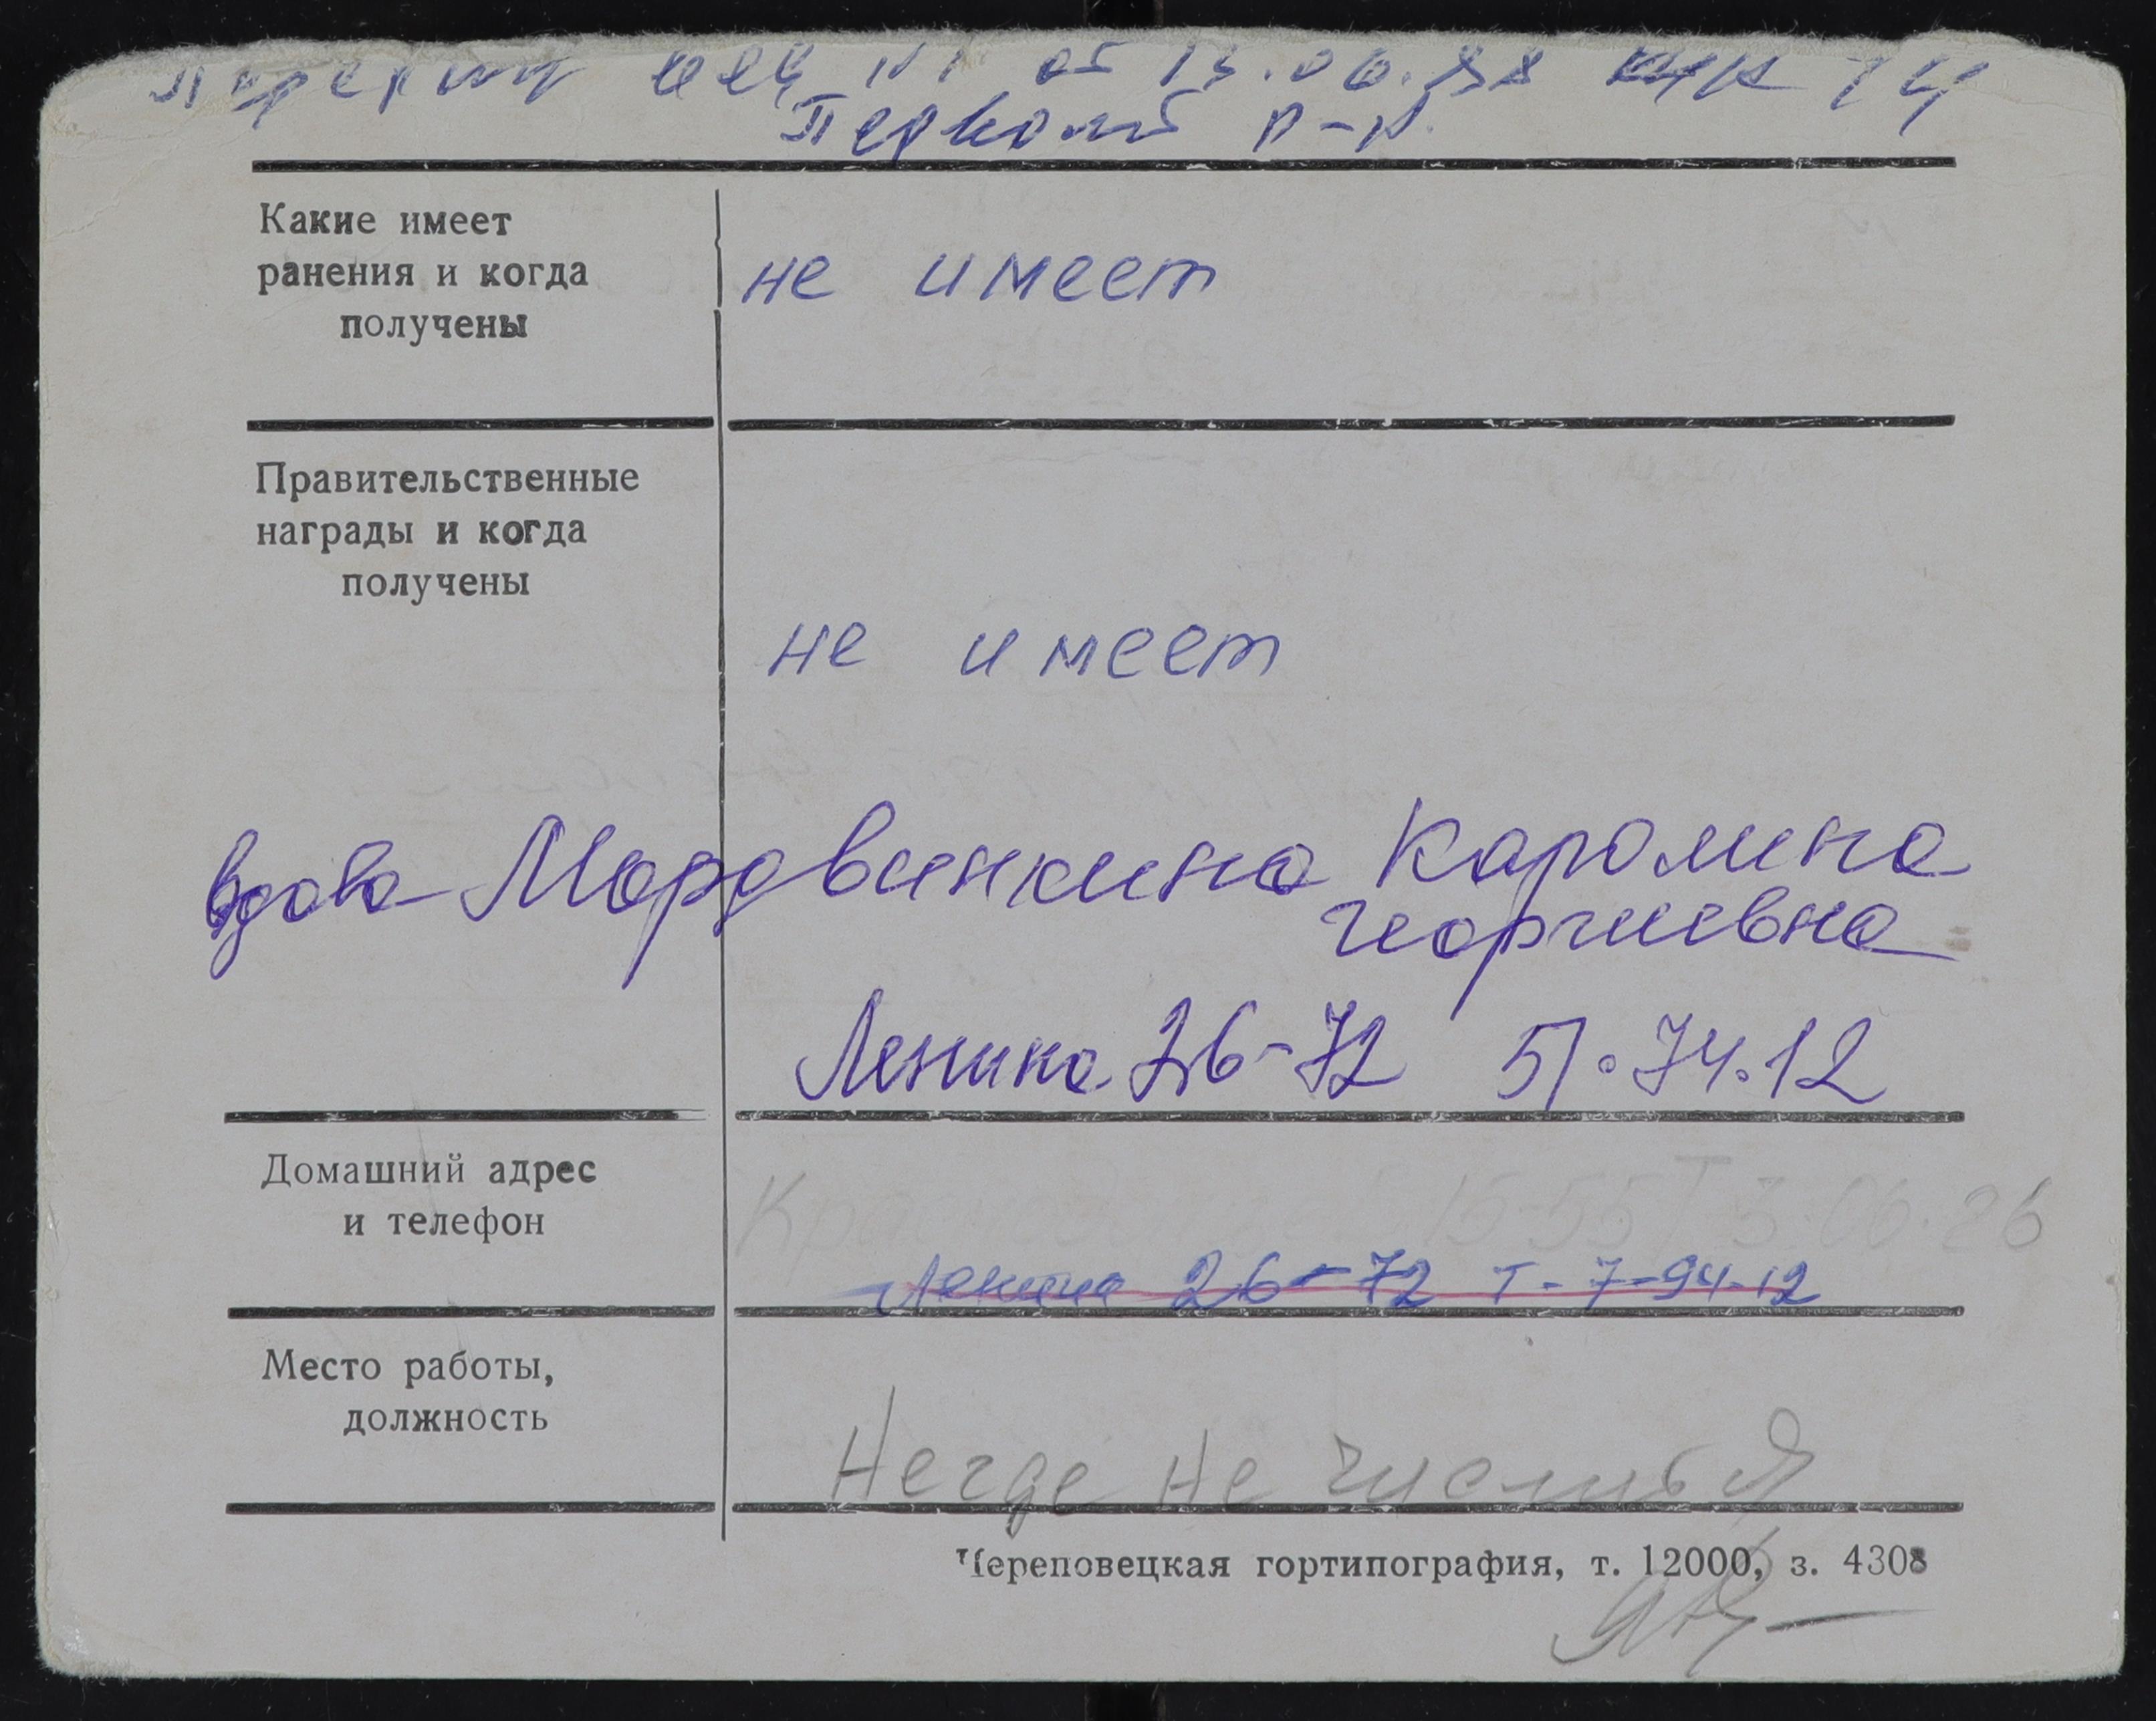 от 13.06.88
р-н.
Какие имеет
ранения и когда
получены
не имеет
Правительственные
награды и когда
получены
не имеет
вдова Мордвинкина Каролина
Георгиевна
Ленина 26-72 57.74.12
Домашний адрес
и телефон
Ленина 26-72 т-7-94-12
Место работы,
должность
Негде не числится
Череповецкая гортипография, т. 12000, з. 4308